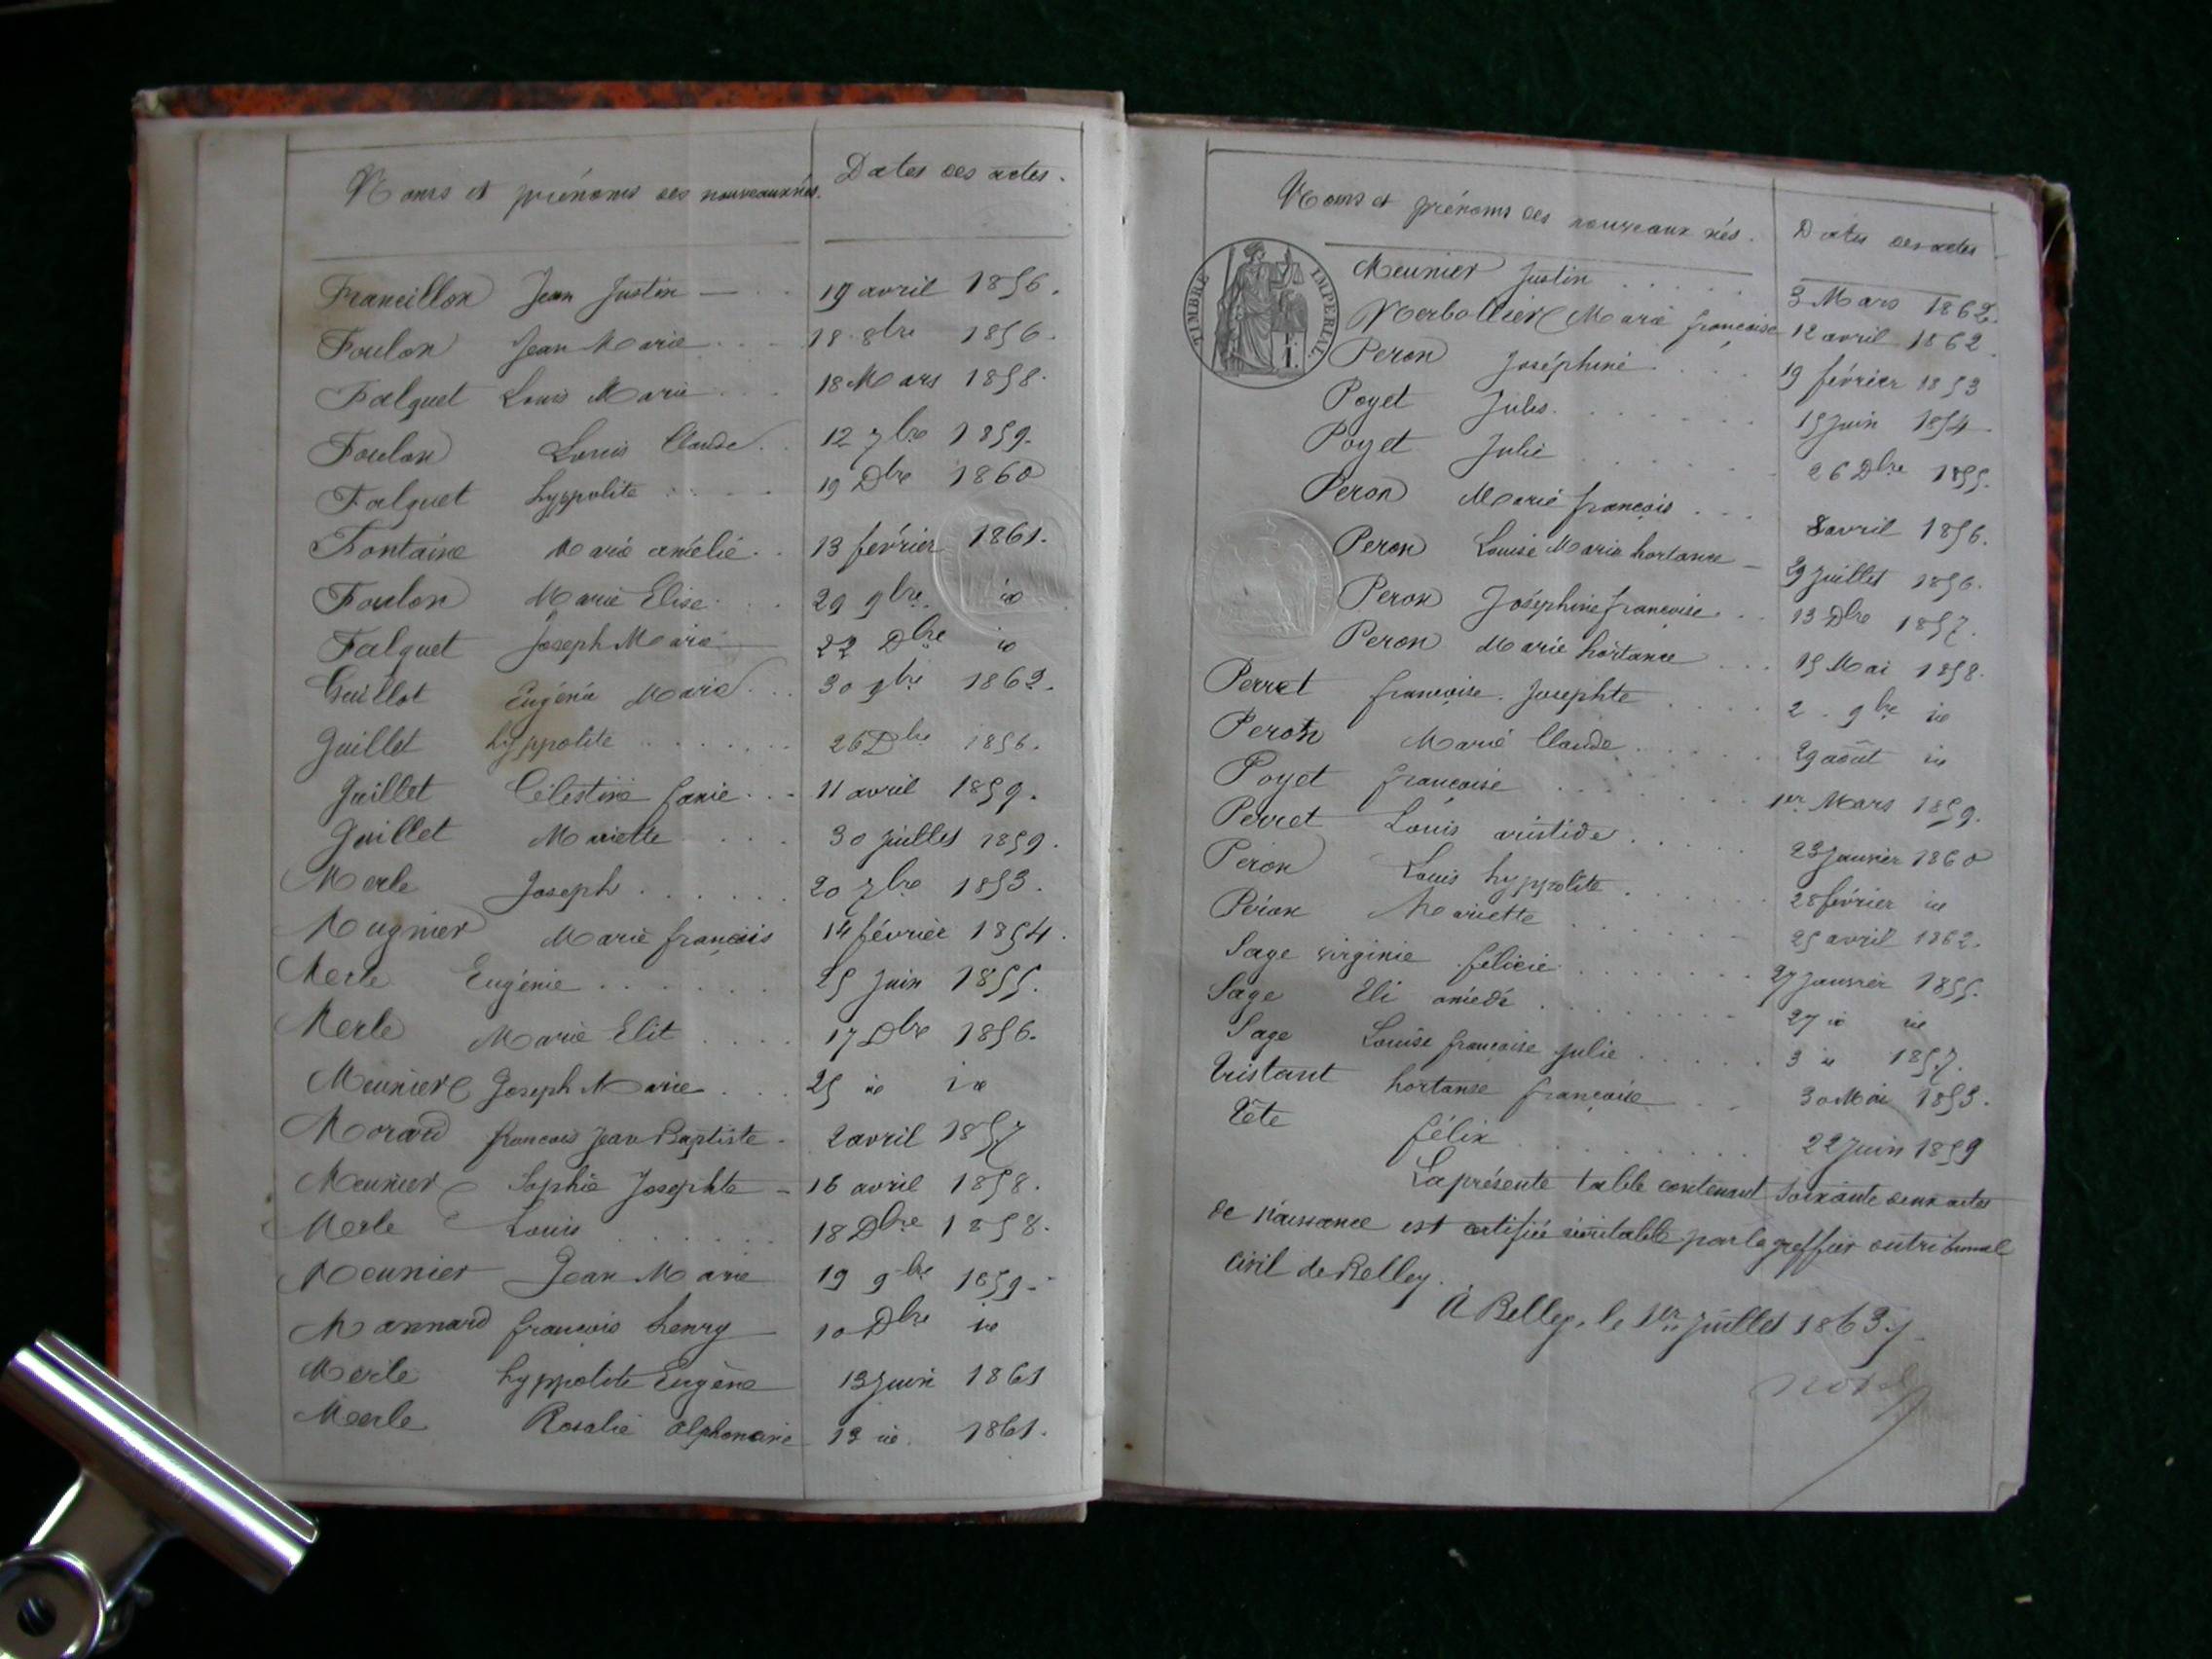 Noms et prénoms des nouveaux nés. Dates des actes.
Francillon Jean Justin 19 avril 1856.
Foulon Jean Marie 18 8bre 1856.
Falquet Louis Marie 18 Mars 1858.
Foulon Louis Claude 12 7bre 1859.
Falquet hyppolite 19 Dbre 1860
Fontaine Marie amélie 13 février 1861.
Foulon Marie Elise 29 9bre id
Falquet Joseph Marie 22 Dbre id
Guillot Eugénie Marie 30 9bre 1862.
Guillet hyppolite 26 Dbre 1856.
Guillet Célestine fanie 11 avril 1859.
Guillet Mariette 30 juillet 1859.
Merle Joseph 20 7bre 1853.
Mugnier Marie françois 14 février 1854.
Merle Eugénie 25 juin 1855.
Merle Marie Elit 17 Dbre 1856.
Meunier Joseph Marie 25 id id
Morard françois Jean Baptiste 2 avril 1857
Meunier Sophie Josephte 16 avril 1858.
Merle Louis 18 Dbre 1858.
Meunier Jean Marie 19 9bre 1859.
Mannard françois henry 10 Dbre id
Merle hyppolite Eugène 13 juin 1861
Merle Rosalie alphonsine 13 id. 1861.
Noms et prénoms des nouveaux nés. Dates des actes
TIMBRE IMPERIAL.
Meunier Justin 3 Mars 1862.
Marie françoise 12 avril 1862
Peron Joséphine 19 février 1853
Poyet Jules 15 juin 1854
Poyet Julie 26 Dbre 1855.
Peron Marie françois 8 avril 1856.
Peron Louise Marie hortance 29 juillet 1856.
Peron Joséphine françoise 13 Dbre 1857.
Peron Marie hortance 15 Mai 1858.
Perret françoise Josephte 2 9bre id
Peron Marie Claude 29 août id
Poyet françoise 1er Mars 1859.
Perret Louis aristide 23 janvier 1860
Peron Louis hyppolite 28 février id
Péron Mariette 25 avril 1862.
Sage virginie félicie 27 janvier 1855.
Sage Eli amédé 27 id id
Sage Louise françoise julie 3 id 1857.
Tristant hortanse françoise 30 Mai 1853.
Tête félix 22 juin 1859
La présente table contenant soixante deux actes
de naissance est certifiée véritable par le greffier du tribunal
civil de Belley.
À Belley, le 1er juillet 1863.